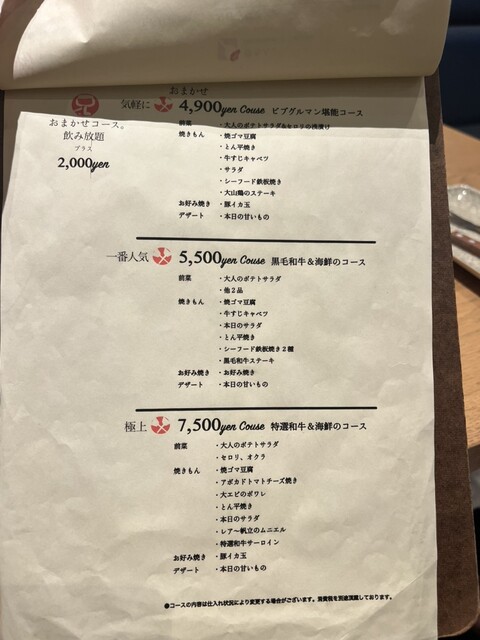 おまかせコース。
飲み放題
プラス
2,000yen
おまかせ
気軽に 4,900yen Couse ビブグルマン堪能コース
前菜 ・大人のポテトサラダ&セロリの浅漬け
焼きもん ・焼ゴマ豆腐
・とん平焼き
・牛すじキャベツ
・サラダ
・シーフード鉄板焼き
・大山鶏のステーキ
お好み焼き ・豚イカ玉
デザート ・本日の甘いもの
一番人気 5,500yen Couse 黒毛和牛&海鮮のコース
前菜 ・大人のポテトサラダ
・他2品
焼きもん ・焼ゴマ豆腐
・牛すじキャベツ
・本日のサラダ
・とん平焼き
・シーフード鉄板焼き2種
・黒毛和牛ステーキ
お好み焼き ・お好み焼き
デザート ・本日の甘いもの
極上 7,500yen Couse 特選和牛&海鮮のコース
前菜 ・大人のポテトサラダ
・セロリ、オクラ
焼きもん ・焼ゴマ豆腐
・アボカドトマトチーズ焼き
・大エビのポワレ
・とん平焼き
・本日のサラダ
・レア〜帆立のムニエル
・特選和牛サーロイン
お好み焼き ・豚イカ玉
デザート ・本日の甘いもの
●コースの内容は仕入れ状況により変更する場合がございます。消費税を別途頂戴しております。